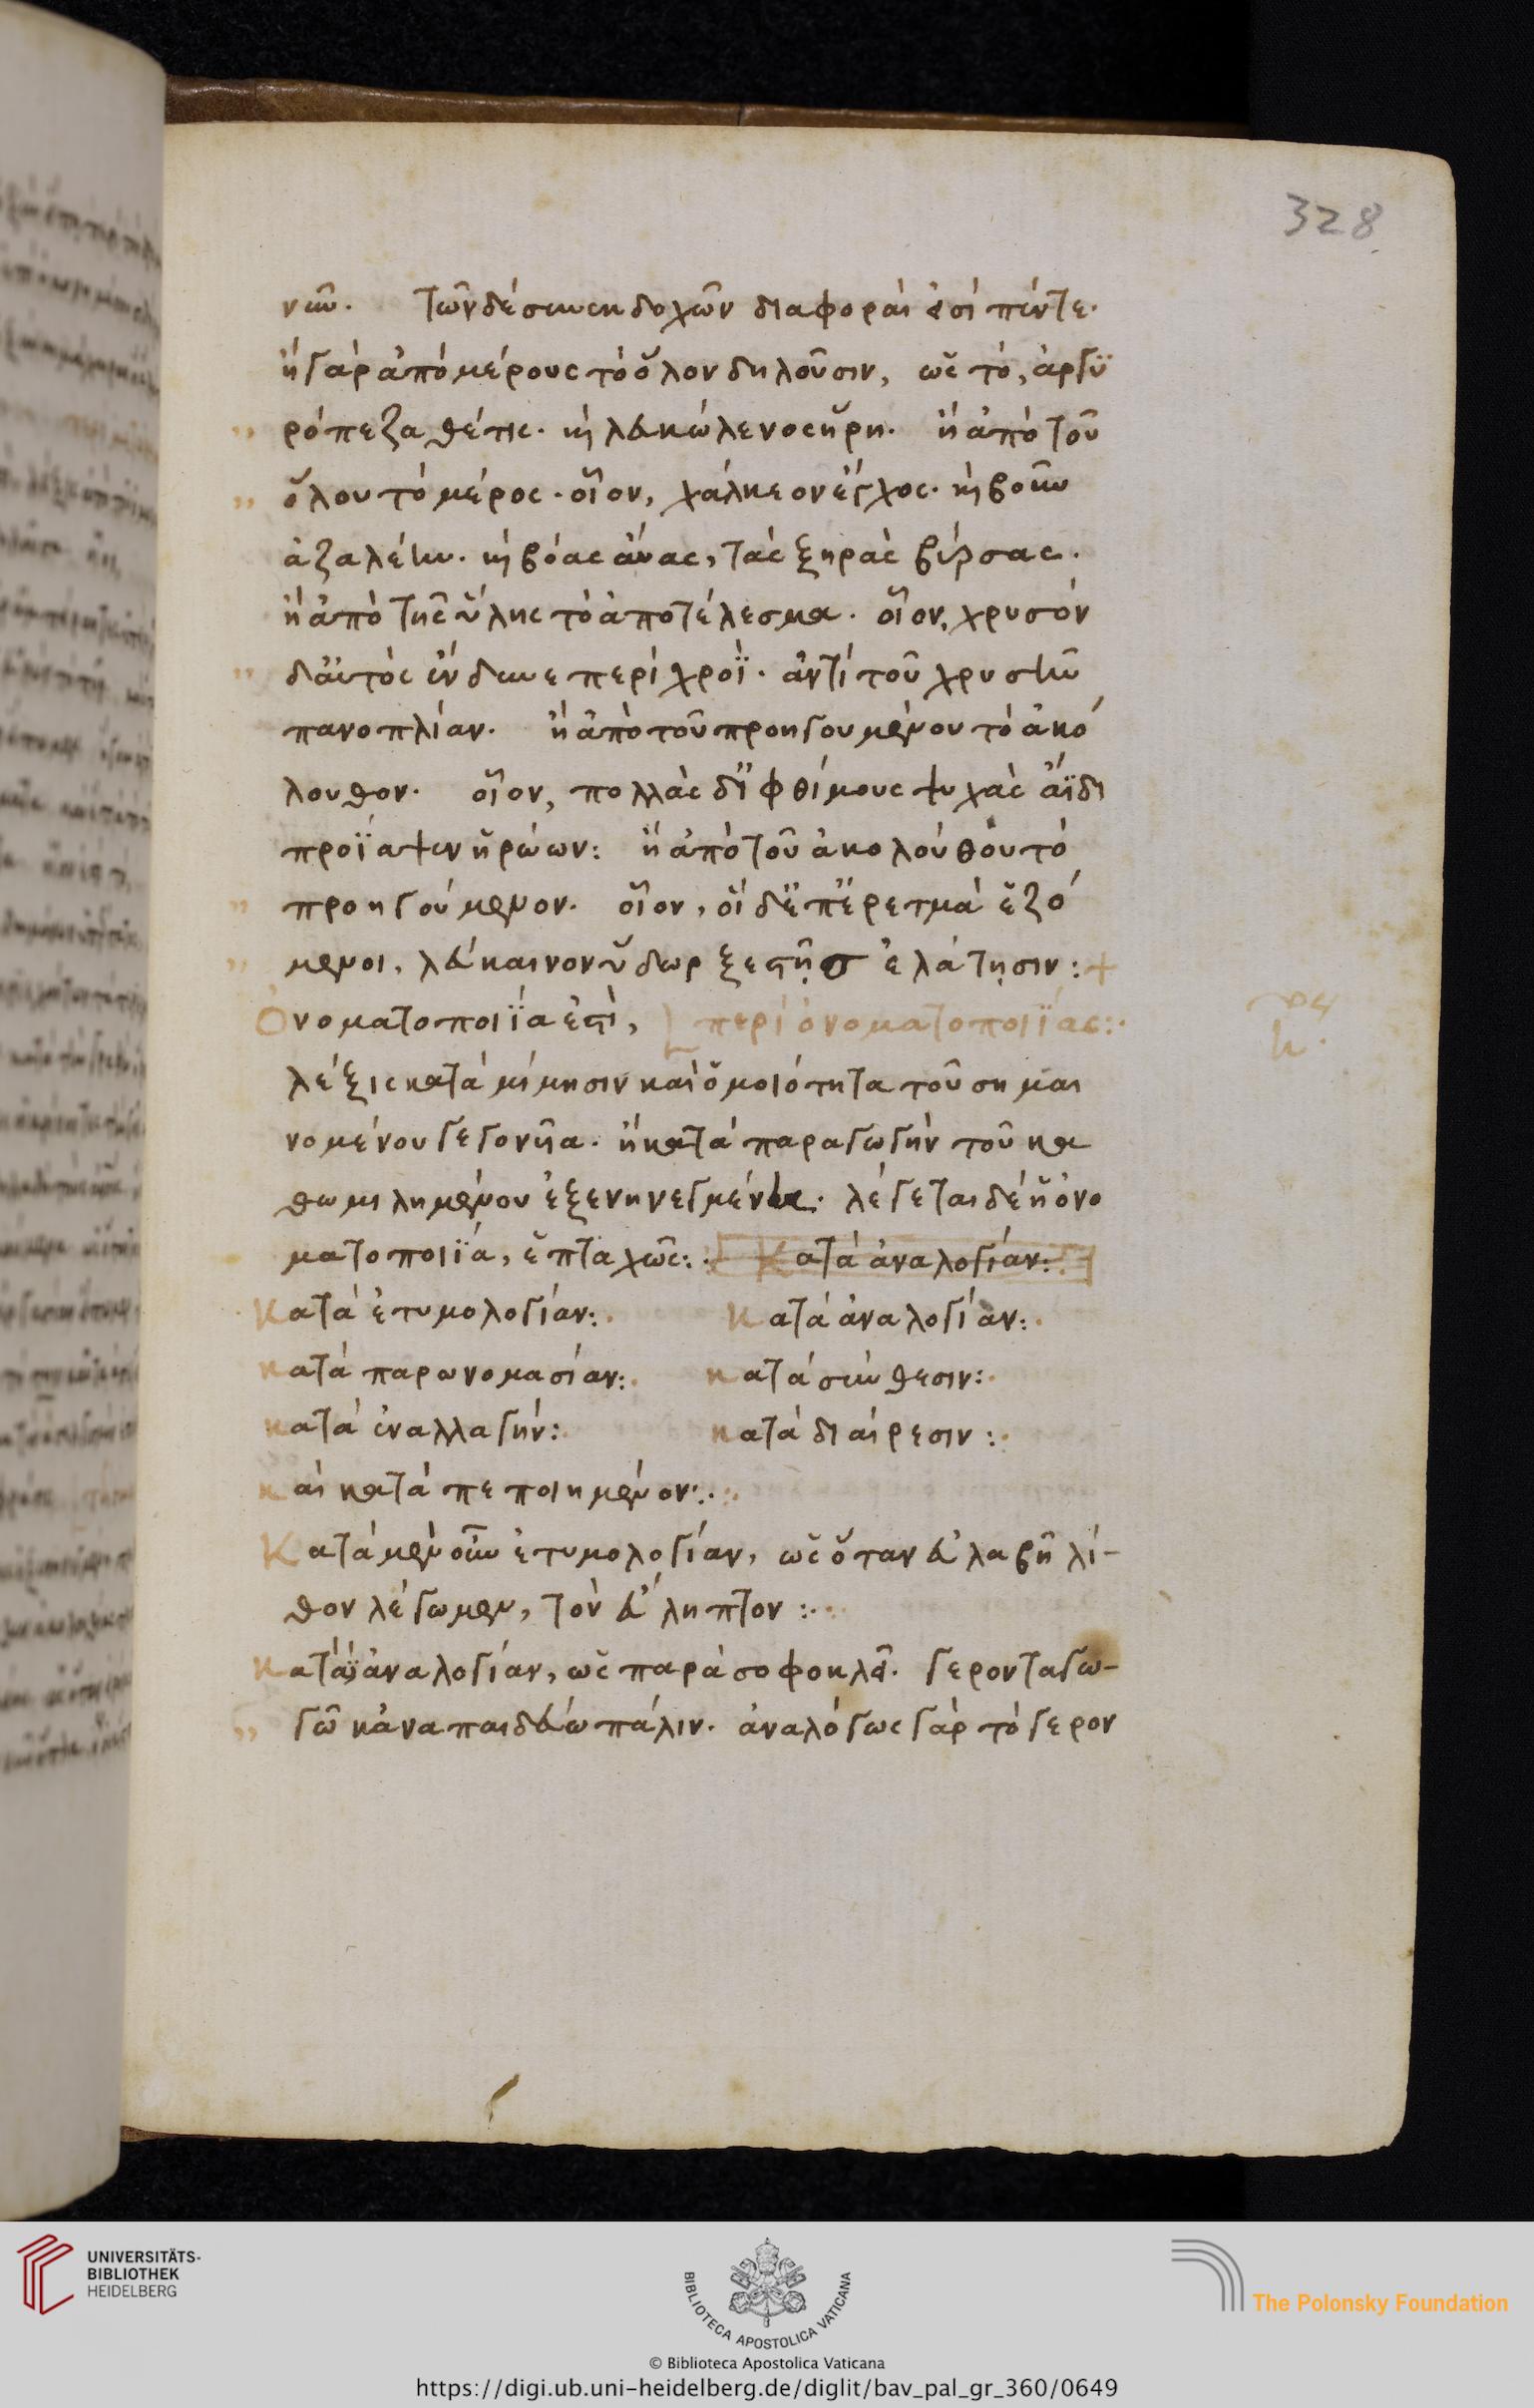 328
νῶν. τῶν δὲ συνεκδοχῶν διαφοραὶ εἰσὶ πέντε.
ἢ γὰρ ἀπὸ μέρους τὸ ὅλον δηλοῦσιν, ὡς τὸ, ἀργυ
ρόπεζα θέτις. κὴ λευκώλενος ἥρη. ἢ ἀπὸ τοῦ
ὅλου τὸ μέρος. οἷον, χάλκεον ἔγχος. κὴ βοῦν
ἀζαλέην. κὴ βόας αὔας, τὰς ξηρὰς βύρσας.
ἢ ἀπὸ τῆς ὕλης τὸ ἀποτέλεσμα. οἷον, χρυσὸν
δ᾽ αὐτὸς ἔνδυνε περὶ χροΐ. ἀντὶ τοῦ χρυσῆν
πανοπλίαν. ἢ ἀπὸ τοῦ προηγουμένου τὸ ἀκό
λουθον. οἷον, πολλὰς δ᾽ ἰφθίμους ψυχὰς ἄϊδι
προΐαψεν ἡρώων: ἢ ἀπὸ τοῦ ἀκολούθου τὸ
προηγούμενον. οἷον, οἱ δ᾽ ἐπ᾽ ἐρετμὰ ἑζό
μενοι, λεύκαινον ὕδωρ ξεστῆσ ἐλάτησιν: +
Ὀνοματοποιΐα ἐστὶ, περὶ ὀνοματοποιΐας:.
λέξις κατὰ μίμησιν καὶ ὁμοιότητα τοῦ σημαι
νομένου γεγονῦια. ἢ κατὰ παραγωγὴν τοῦ κα
θωμιλημένου ἐξενηνεγμένη. λέγεται δὲ ἡ ὀνο
ματοποιΐα, ἑπταχῶς:. Κατὰ ἀναλογίαν:.
Κατὰ ἐτυμολογίαν:. Κατὰ ἀναλογίαν:.
κατὰ παρωνομασίαν:. κατὰ σύνθεσιν:.
κατὰ ἐναλλαγήν:. κατὰ διαίρεσιν:.
καὶ κατὰ πεποιημένον:.
Κατὰ μὲν οὖν ἐτυμολογίαν, ὡς ὅταν εὐλαβῆ λί-
θον λέγωμεν, τὸν εὔληπτον:.
κατὰ δ᾽ ἀναλογίαν, ὡς παρὰ σοφοκλεῖ. γεροντაγω-
γῶ κἀναπαιδεύω πάλιν. ἀναλόγως γὰρ τὸ γερον
UNIVERSITÄTS-
BIBLIOTHEK
HEIDELBERG
BIBLIOTECA APOSTOLICA VATICANA
© Biblioteca Apostolica Vaticana
The Polonsky Foundation
https://digi.ub.uni-heidelberg.de/diglit/bav_pal_gr_360/0649